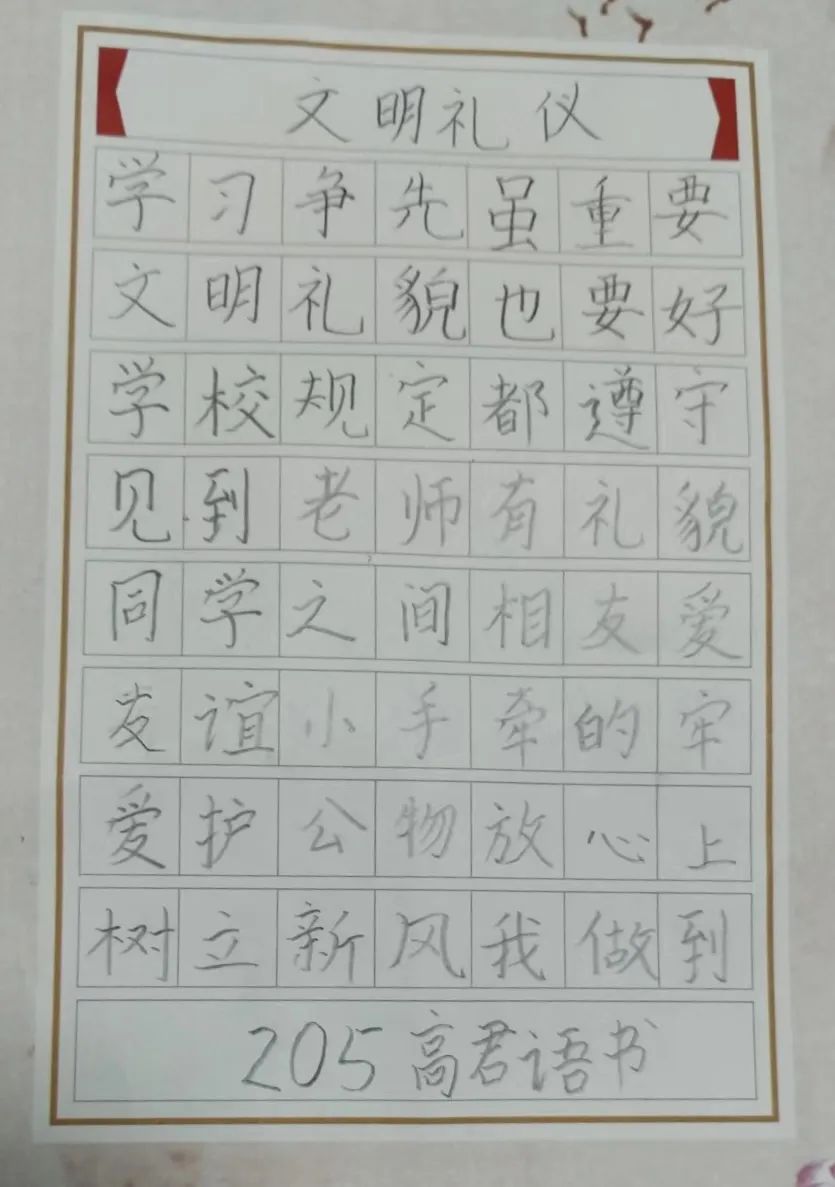 文明礼仪
学习争先虽重要
文明礼貌也要好
学校规定都遵守
见到老师有礼貌
同学之间相友爱
友谊小手牵的牢
爱护公物放心上
树立新风我做到
205高君语书